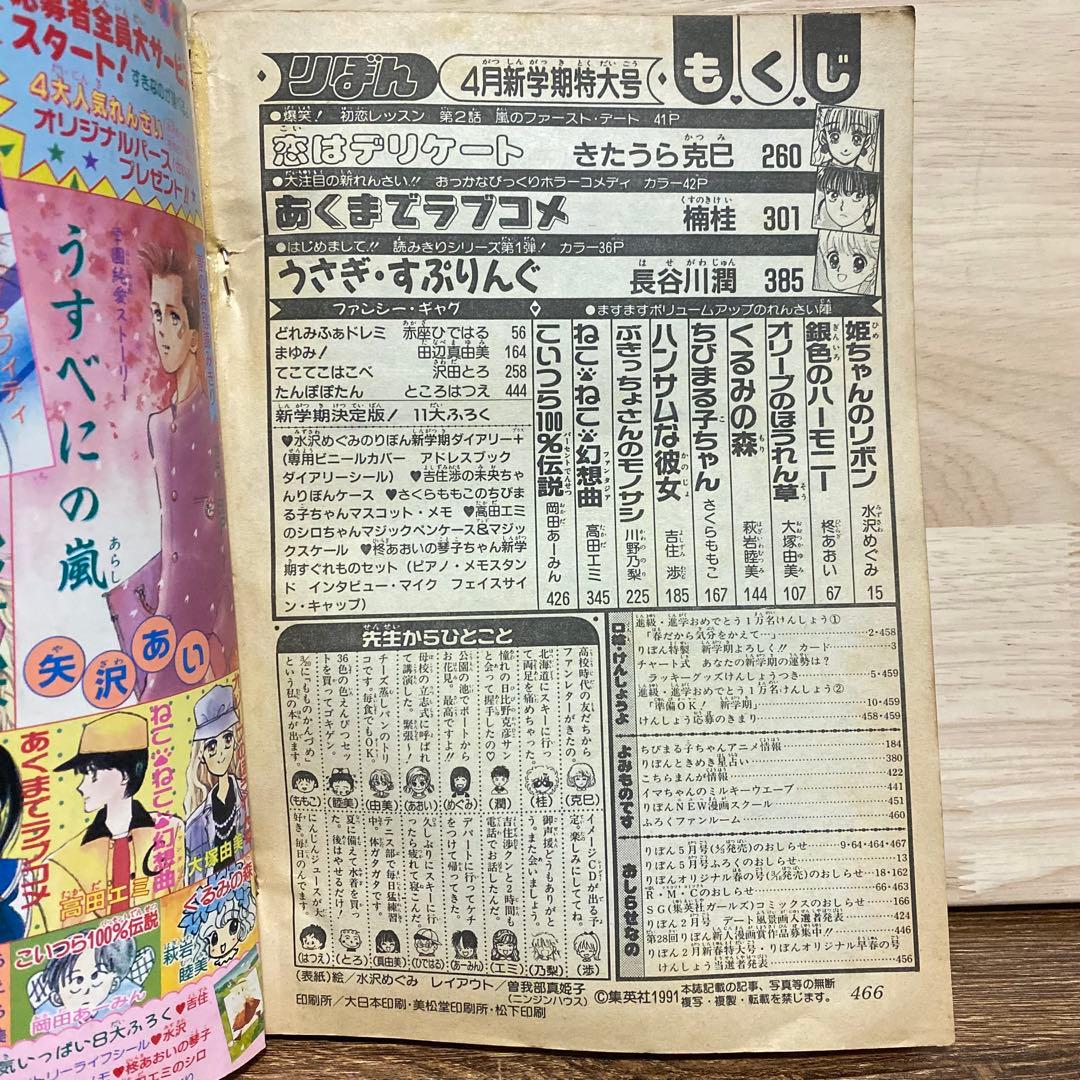 りぼん
4月新学期特大号
もくじ
●爆笑! 初恋レッスン 第2話 嵐のファースト・デート 41P
恋はデリケート きたうら克巳 260
●大注目の新れんさい!! おっかなびっくりホラーコメディ カラー42P
あくまでラブコメ 楠桂 301
●はじめまして!! 読みきりシリーズ第1弾! カラー36P
うさぎ・すぷりんぐ 長谷川潤 385
ファンシー・ギャグ
どれみふぁドレミ 赤座ひではる 56
まゆみ! 田辺真由美 164
てこてこはこべ 沢田とろ 258
たんぽぽたん ところはつえ 444
新学期決定版! 11大ふろく
♥水沢めぐみのりぼん新学期ダイアリー+
(専用ビニールカバー アドレスブック
ダイアリーシール) ♥吉住渉の未央ちゃ
んりぼんケース ♥さくらももこのちびま
る子ちゃんマスコット・メモ ♥高田エミ
のシロちゃんマジックペンケース&マジッ
クスケール ♥柊あおいの琴子ちゃん新学
期すぐれものセット (ピアノ・メモスタン
ド インタビュー・マイク フェイスサイ
ン・キャップ)
●ますますボリュームアップのれんさい陣
姫ちゃんのリボン 水沢めぐみ 15
銀色のハーモニー 柊あおい 67
オリーブのほうれん草 大塚由美 107
くるみの森 萩岩睦美 144
ちびまる子ちゃん さくらももこ 167
ハンサムな彼女 吉住渉 185
ぶきっちょさんのモノサシ 川野乃梨 225
ねこ・ねこ幻想曲 高田エミ 345
こいつら100%伝説 岡田あーみん 426
先生からひとこと
高校時代の友だちから
ファンレターがきたの。
(克巳)
北海道にスキーに行っ
て両足を痛めちゃった。
(桂)
憧れの日比野克彦サン
と会って握手したの♥
(潤)
公園の池でボートから
お花見。最高ですよ!!
(めぐみ)
母校の立志式に呼ばれ
て講演した。緊張〜
(あおい)
チーズ蒸しパンのトリ
コです。毎食でもOK。
(由美)
36色の色えんぴつセッ
トを買ってゴキゲン。
(睦美)
3/20に「もものかんづめ」
という私の本が出ます。
(ももこ)
イメージCDが出る予
定。楽しみにしててね。
(渉)
御声援どうもありがと
う。また会いましょう。
(乃梨)
吉住渉クンと2時間も
電話でお話したんだ。
(エミ)
デパートに行ってケチ
をつけて帰ってきた。
(あーみん)
久しぶりにスキーに行
ったら疲れて寝こんだ。
(ひではる)
テニス部で毎日猛練習
中。体ガタガタです。
(真由美)
夏に備えて水着を買っ
た。後はやせるだけ!
(とろ)
にんじんジュースが大
好き。毎日のんでます。
(はつえ)
口絵・けんしょうよ
進級・進学おめでとう1万名けんしょう①
「春だから気分をかえて…」 2・458
りぼん特製 新学期よろしく!! カード 3
チャート式 あなたの新学期の運勢は?
ラッキーグッズけんしょうつき 5・459
進級・進学おめでとう1万名けんしょう②
「準備OK! 新学期」 10・459
けんしょう応募のきまり 458・459
よみものです
ちびまる子ちゃんアニメ情報 184
りぼんときめき星占い 380
こちらまんが情報 422
イマちゃんのミルキーウエーブ 441
りぼんNEW漫画スクール 451
ふろくファンルーム 460
おしらせなの
りぼん5月号(4/3発売)のおしらせ 9・64・464・467
りぼん5月号ふろくのおしらせ 13
りぼんオリジナル春の号(3/15発売)のおしらせ 18・162
R・M・Cのおしらせ 66・463
SG(集英社ガールズ)コミックスのおしらせ 166
りぼん2月号 デート風景画入選者発表 424
第28回りぼん新人漫画賞作品募集中!! 446
りぼん2月新春特大号、りぼんオリジナル早春の号
けんしょう当選者発表 456
(表紙)絵/水沢めぐみ レイアウト/曽我部真姫子
(ニンジンハウス)
©集英社1991
本誌記載の記事、写真等の無断
複写・複製・転載を禁じます。
466
印刷所/大日本印刷・美松堂印刷所・松下印刷
応募者全員大サービ
スタート!
4大人気れんさい
オリジナルパース
プレゼント!!
学園純愛ストーリー
うすべにの嵐
矢沢あい
あくまでラブコメ
ねこ・ねこ幻想曲
高田エミ
大塚由美
くるみの森
萩岩睦美
こいつら100%伝説
岡田あーみん
気いっぱい8大ふろく♥吉住
トリーライフシール♥水沢
メモ♥柊あおいの琴子
エミのシロ